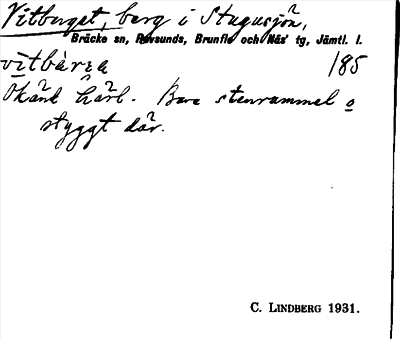 Vitberget, berg i Stugusjön,
Bräcke sn, Revsunds, Brunflo och Näs' tg, Jämtl. l.
vītbàrɛa 185
Okänt härl. Bara stenrammel o
styggt där.
C. LINDBERG 1931.